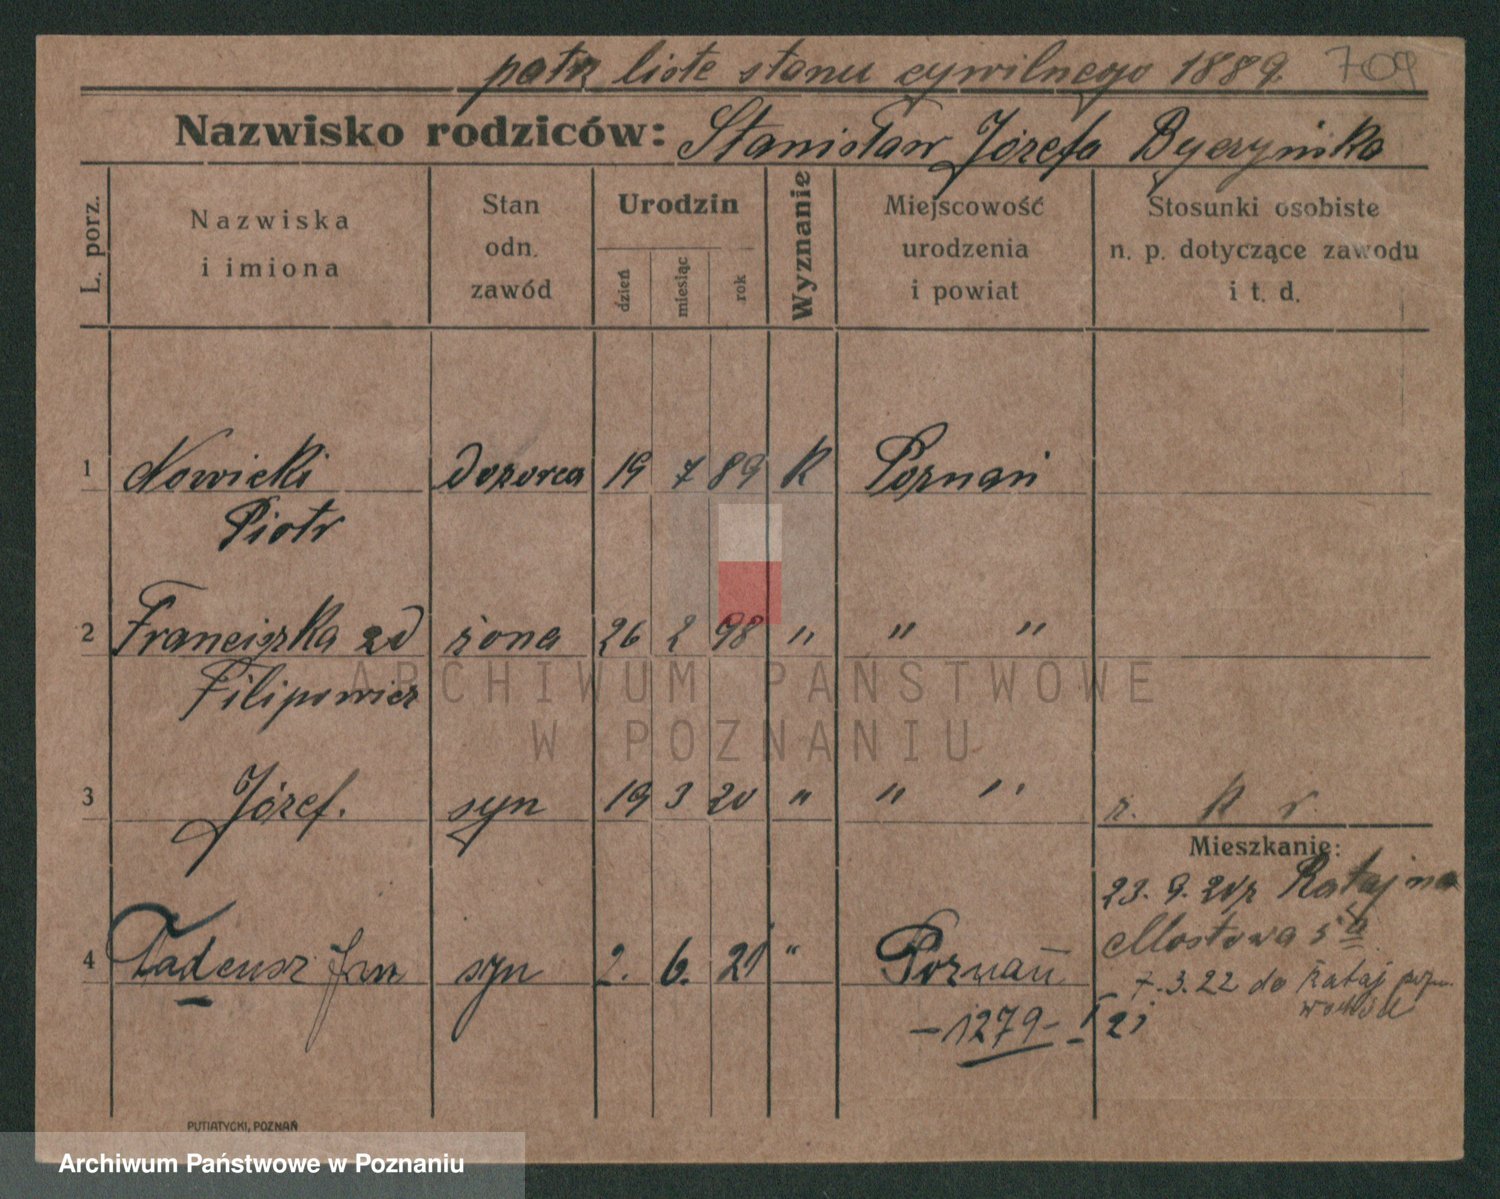 patrz liste stanu cywilnego 1889. 709
Nazwisko rodziców: Stanisław Józefa Byczyńska
L. porz.
Nazwiska
i imiona
Stan
odn.
zawód
Urodzin
dzień
miesiąc
rok
Wyznanie
Miejscowość
urodzenia
i powiat
Stosunki osobiste
n. p. dotyczące zawodu
i t. d.
1 Nowicki dozorca 19 7 89 K Poznań
Piotr
2 Franciszka zd żona 26 2 98 " " "
Filipowicz
3 Józef. syn 19 3 20 " " "
r. k r.
Mieszkanie:
23. 9. 20 Rataj na
Mostowa 5a
4 Tadeusz Jan syn 2. 6. 21 " Poznań
7.3.22 do Rataj
- 1279 - I 21
PUTIATYCKI, POZNAŃ
ARCHIWUM PAŃSTWOWE
W POZNANIU
Archiwum Państwowe w Poznaniu